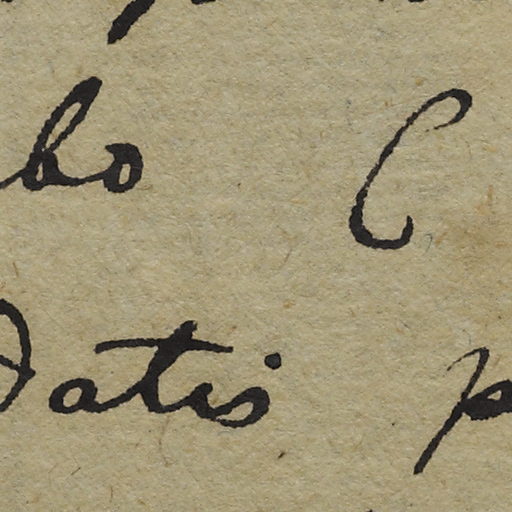 bo (
datis p